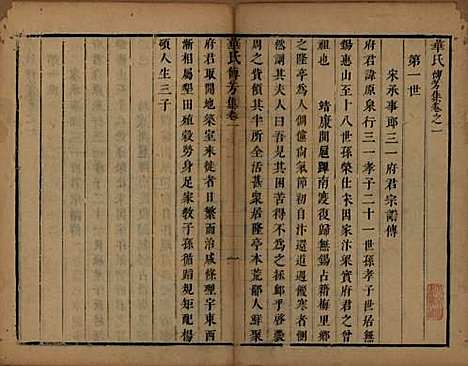 華氏傳芳集卷之一
第一世
宋承事郎三一府君宗譜傳
府君諱原泉行三一孝子二十一世孫孝子世居無
錫惠山至十八世孫榮仕宋因家汴杲實府君之曾
祖也
靖康間扈蹕南渡復歸無錫占籍梅里鄉
之隆亭爲人倜儻有氣節初自汴還道遇饑寒者惻
然濟之其夫人曰吾見其困苦得不爲之拯邺乎啓囊
周之貲傾其半所全活甚衆居隆亭本荒鄙人鮮聚
府君取開地築室來徙者日繁而治成條理宇東西
相屬墾田殖穀勞身足家教子孫循蹈規矩配楊
碩人生三子
華氏傳芳集 卷一
一